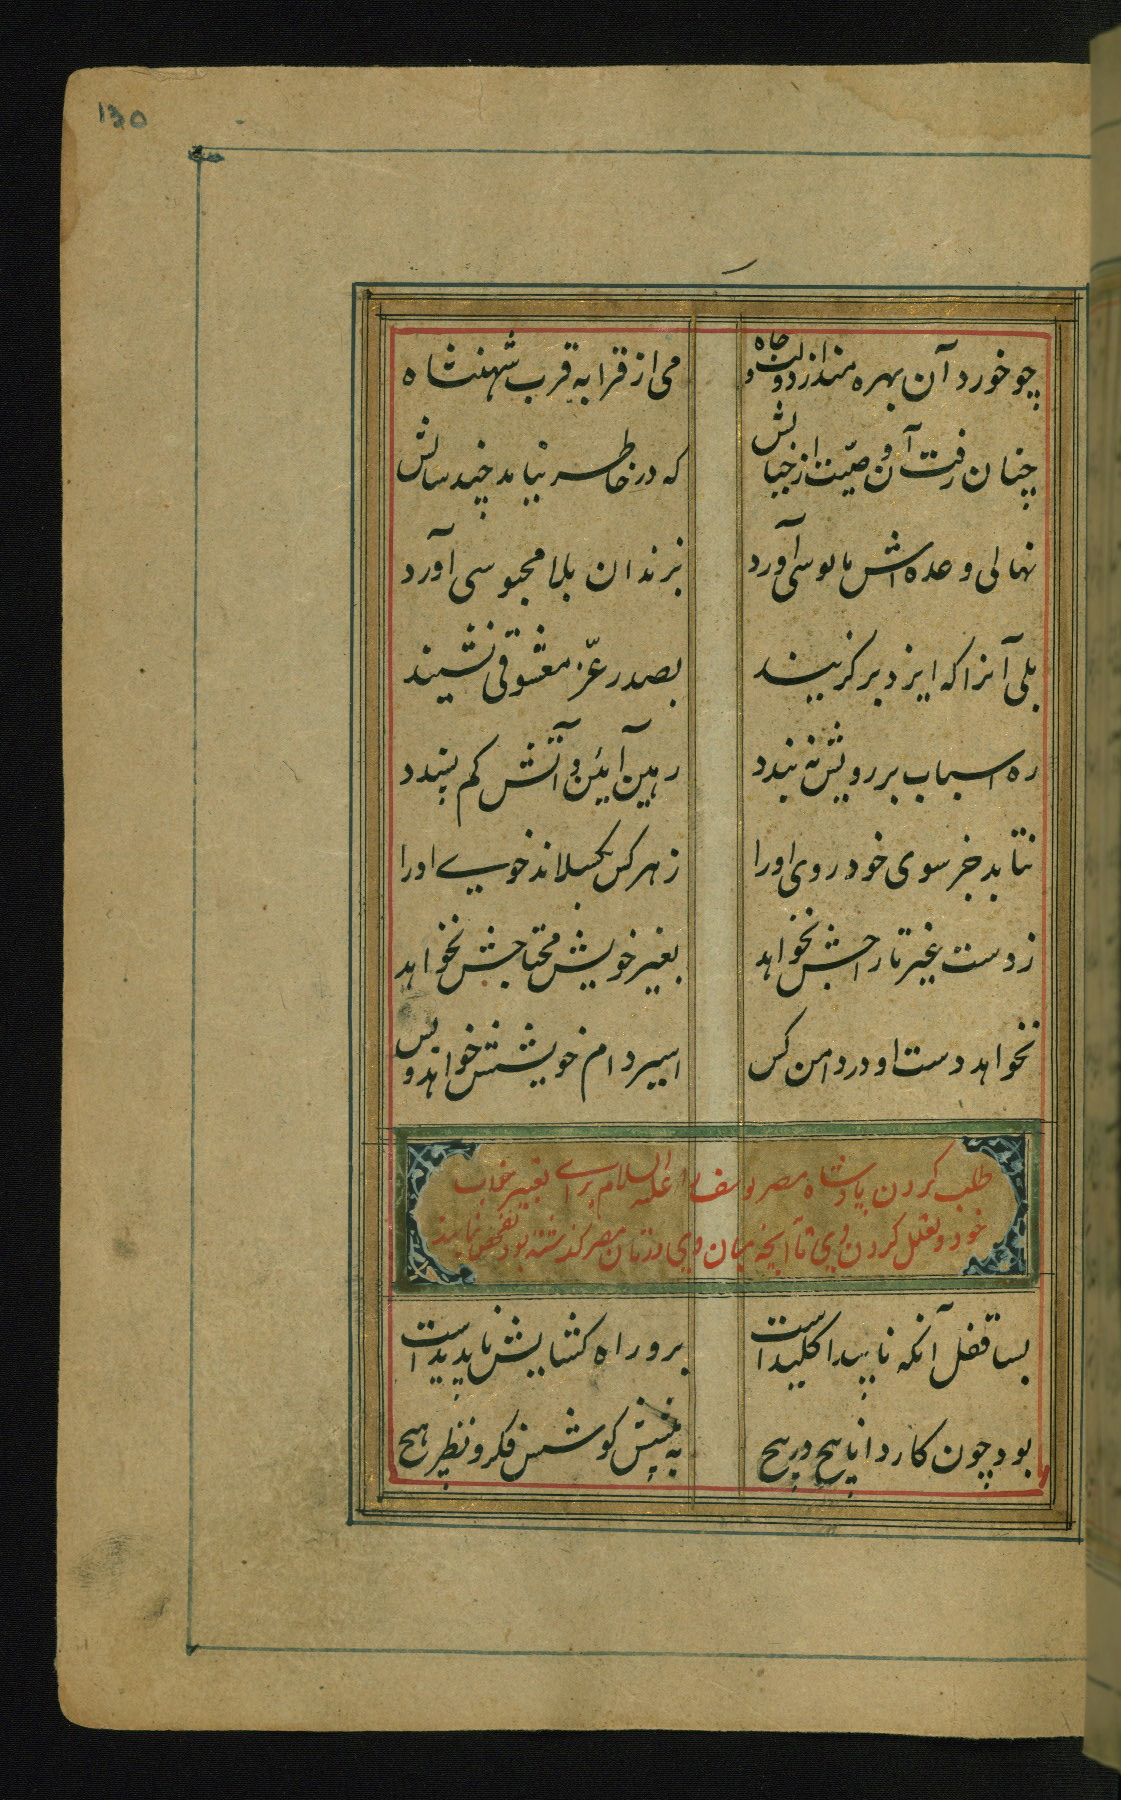 130
چو خورد آن بهره مند از دولت و جاه
می از قرابه قرب شهنشاه
چنان رفت آن وصیت از خیالش
که در خاطر نیامد چند سالش
نهالی وعده اش مایوسی آورد
بزندان بلا محبوسی آورد
بلی آنرا که ایزد بر گزیند
بصدر عز معشوقی نشیند
ره اسباب بر رویش نه بندد
رهین آیین و آتش کم پسندد
نتابد جز سوی خود روی او را
ز هر کس بگسلاند خوی او را
ز دست غیر تاراجش نخواهد
بغیر خویش محتاجش نخواهد
نخواهد دست او در دامن کس
اسیر دام خویشش خواهد و بس
طلب کردن پادشاه مصر یوسف را علیه السلام برای تعبیر خواب
خود و تعلل کردن وی تا آنچه میان وی و زنان مصر گذشته بود تفحص نمایند
بسا قفل آنکه ناپیدا کلید است
برو راه کشایش ناپدید است
بود چون کار دانا پیچ در پیچ
به پیش کوشش فکر و نظر هیچ